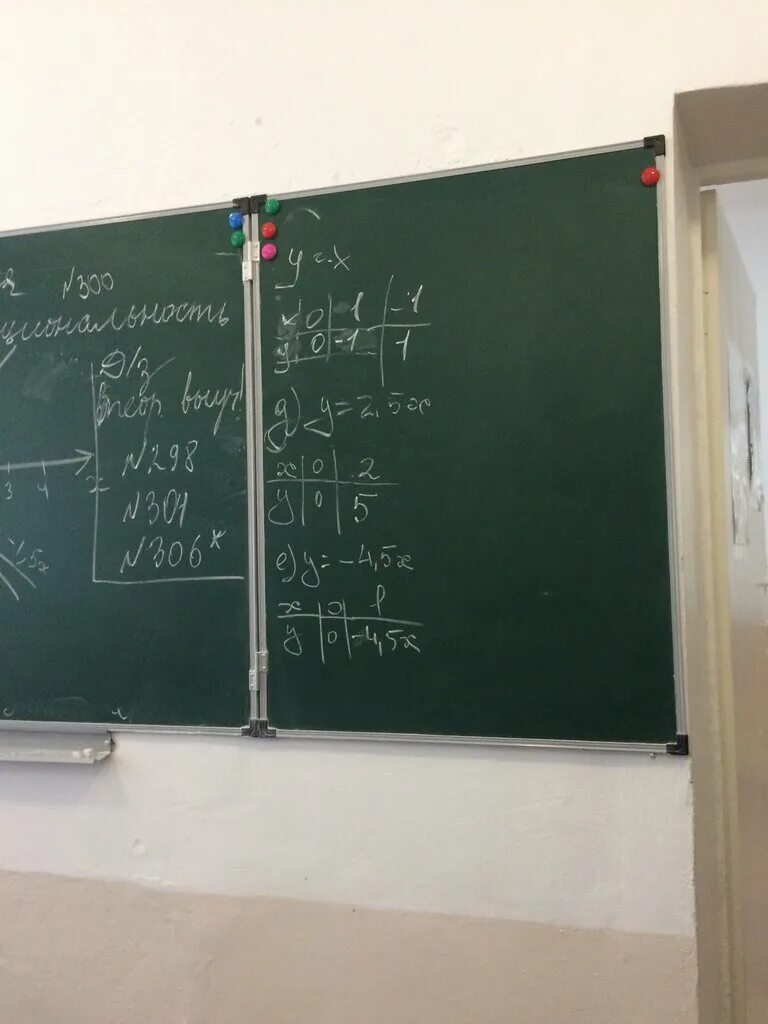 №300
циональность
Д/з
№298
№301
№306*
3 4 x
-1,5x
y=-x
x 0 1 -1
y 0 -1 1
д) y=2,5x
x 0 2
y 0 5
е) y=-4,5x
x 0 1
y 0 -4,5x